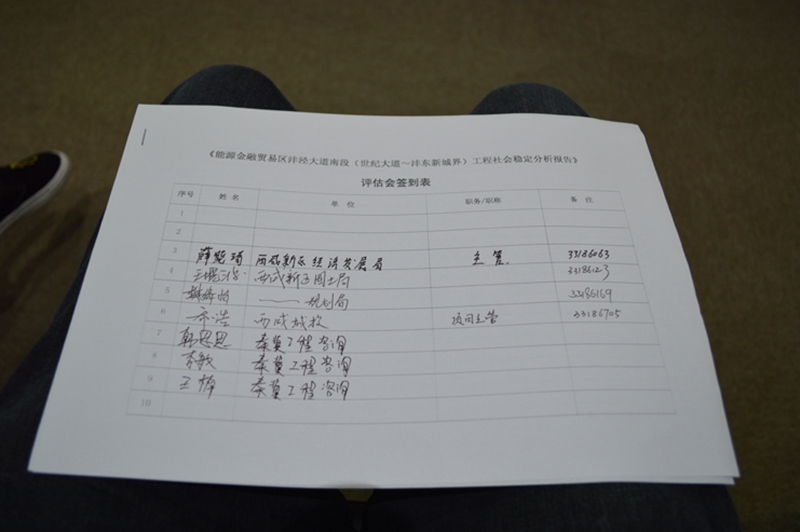 《能源金融贸易区沣泾大道南段（世纪大道～沣东新城界）工程社会稳定分析报告》
评估会签到表
序号 姓名 单位 职务/职称 备注
1
2
3 西咸新区经济发展局 主管 33186063
4 西咸新区国土局 33186123
5 —— 规划局 33186169
6 乔浩 西咸城投 项目主管 33186705
7 韩思思 秦翼工程咨询
8 李敏 秦翼工程咨询
9 王楠 秦翼工程咨询
10